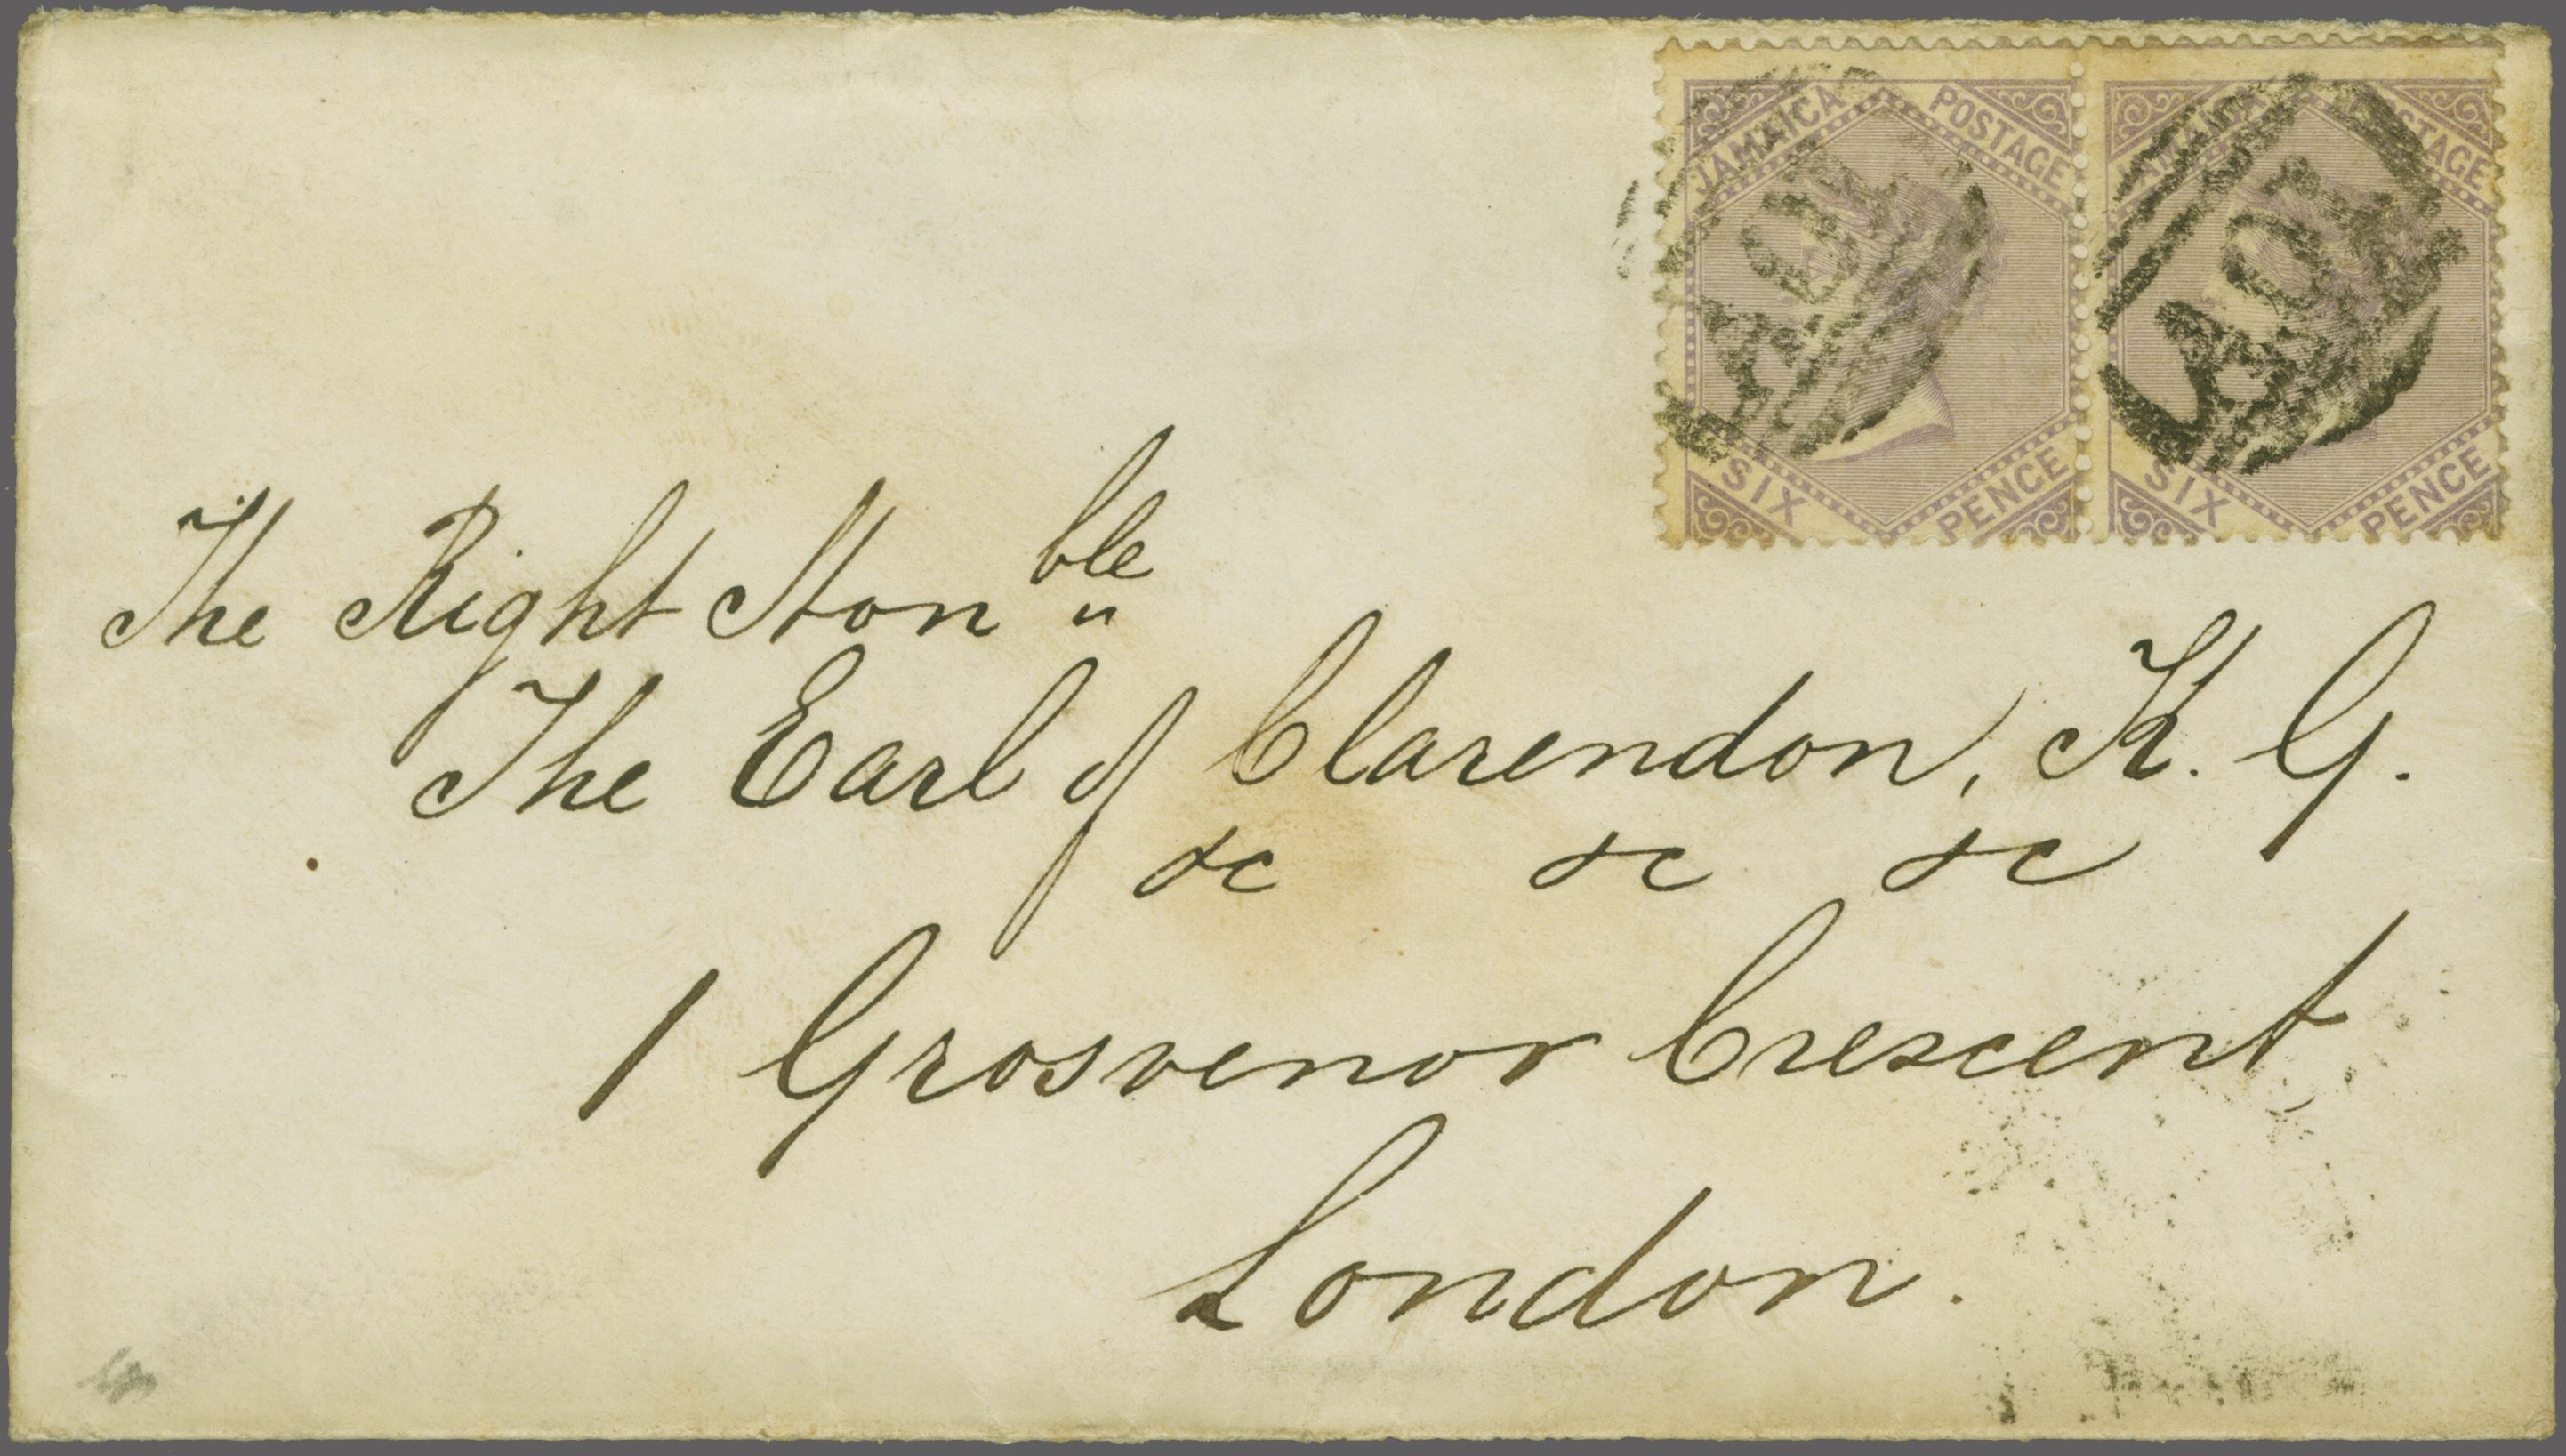 JAMAICA POSTAGE
SIX PENCE
JAMAICA POSTAGE
SIX PENCE
The Right Honble
The Earl of Clarendon, K. G.
&c &c &c
1 Grosvenor Crescent
London.